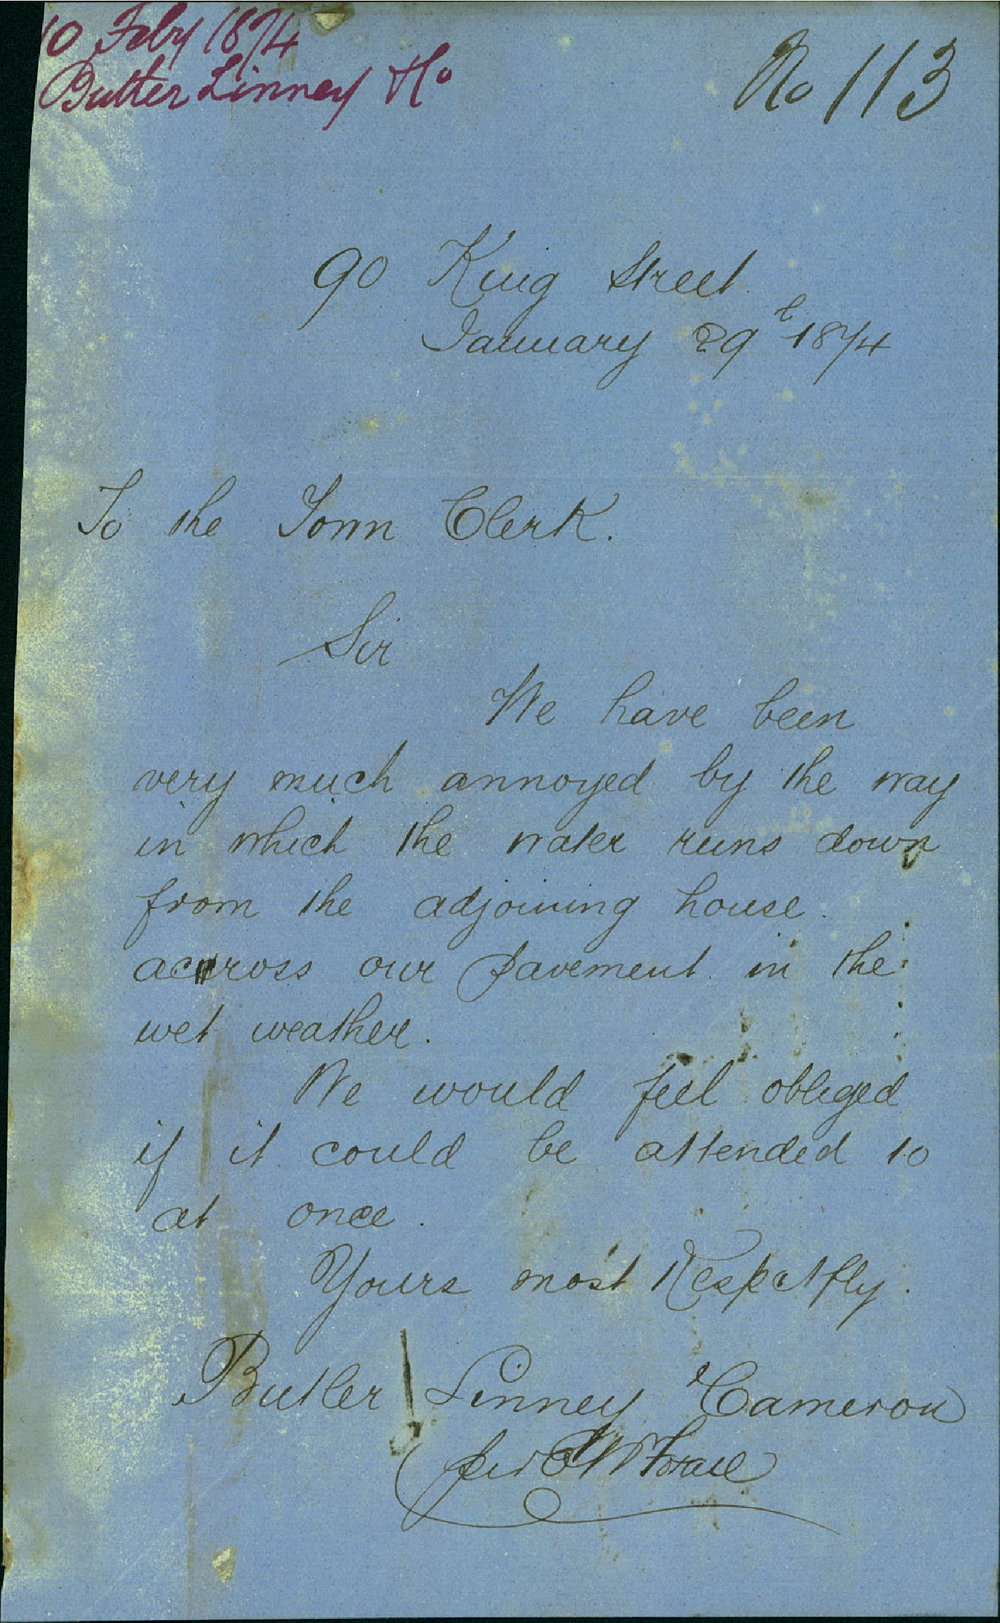 10 Feby 1874
Butler Linney & Co
No 113
90 King Street
January 29t 1874
To the Town Clerk.
Sir
We have been
very much annoyed by the way
in which the water runs down
from the adjoining house
accross our pavement in the
wet weather.
We would feel obliged
if it could be attended to
at once.
Yours most Respctfly.
Butler Linney & Cameron
per